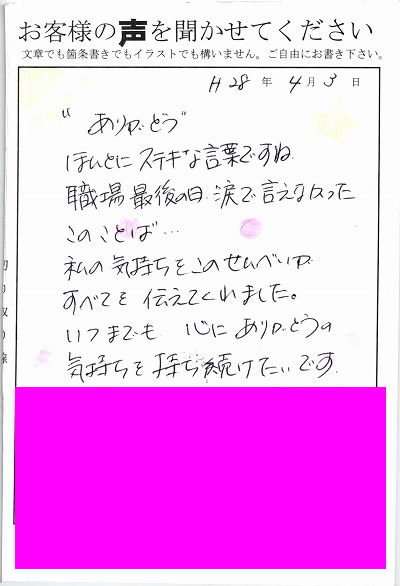 お客様の声を聞かせてください
文章でも箇条書きでもイラストでも構いません。ご自由にお書き下さい。
H28年 4月3日
"ありがとう"
ほんとにステキな言葉ですね
職場最後の日 涙で言えなかった
このことば…
私の気持ちをこのせんべいが
すべてを伝えてくれました。
いつまでも 心にありがとうの
気持ちを持ち続けたいです.
切り取り線